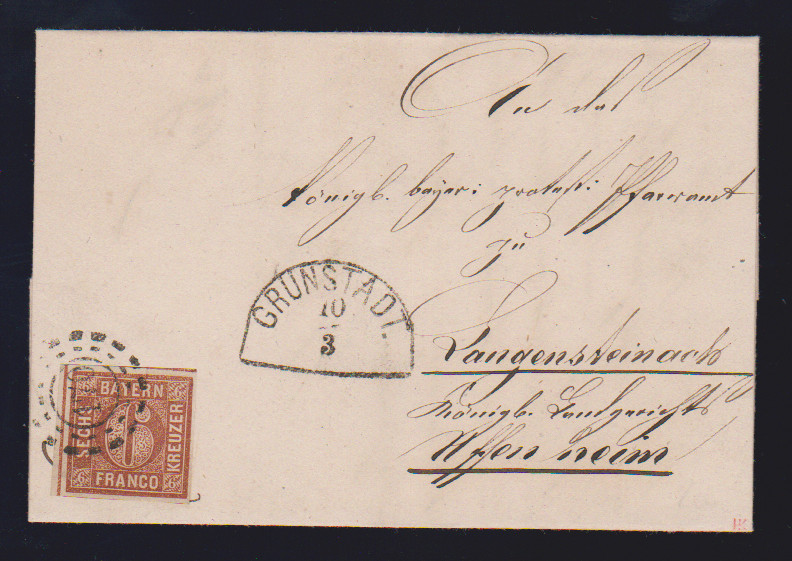 An das
Königl. bayer: protest: Pfarramt
zu
GRÜNSTADT.
10
3
Langensteinach
Königl. Landgerichts
Uffenheim
BAYERN
SECHS
6
KREUZER
FRANCO
6 6 6 6
HK